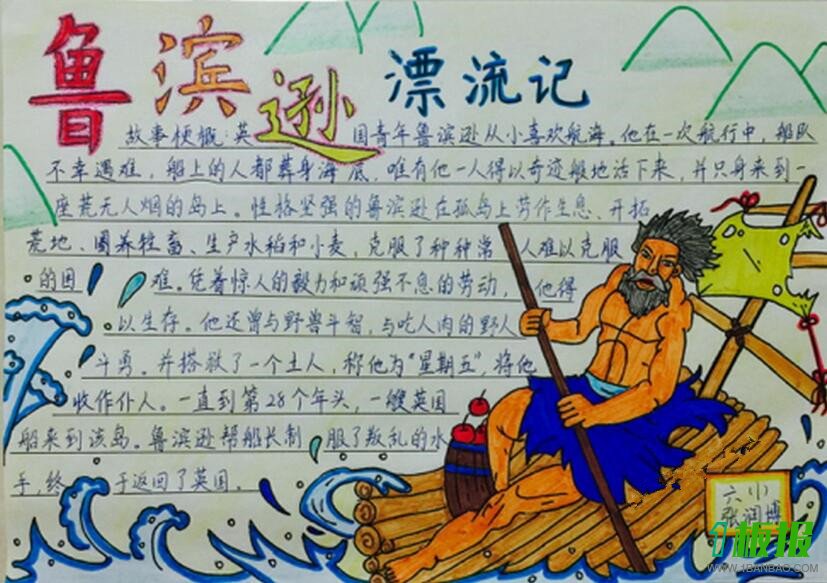 鲁滨逊漂流记
故事梗概:英国青年鲁滨逊从小喜欢航海。他在一次航行中,船队
不幸遇难,船上的人都葬身海底,唯有他一人得以奇迹般地活下来,并只身来到一
座荒无人烟的岛上。性格坚强的鲁滨逊在孤岛上劳作生息、开拓
荒地、圈养牲畜、生产水稻和小麦,克服了种种常人难以克服
的困难。凭着惊人的毅力和顽强不息的劳动,他得
以生存。他还曾与野兽斗智,与吃人肉的野人
斗勇。并搭救了一个土人,称他为“星期五”,将他
收作仆人。一直到第28个年头,一艘英国
船来到该岛。鲁滨逊帮船长制服了叛乱的水
手,终于返回了英国。
六(1)
张润博
1板报
WWW.1BANBAO.COM